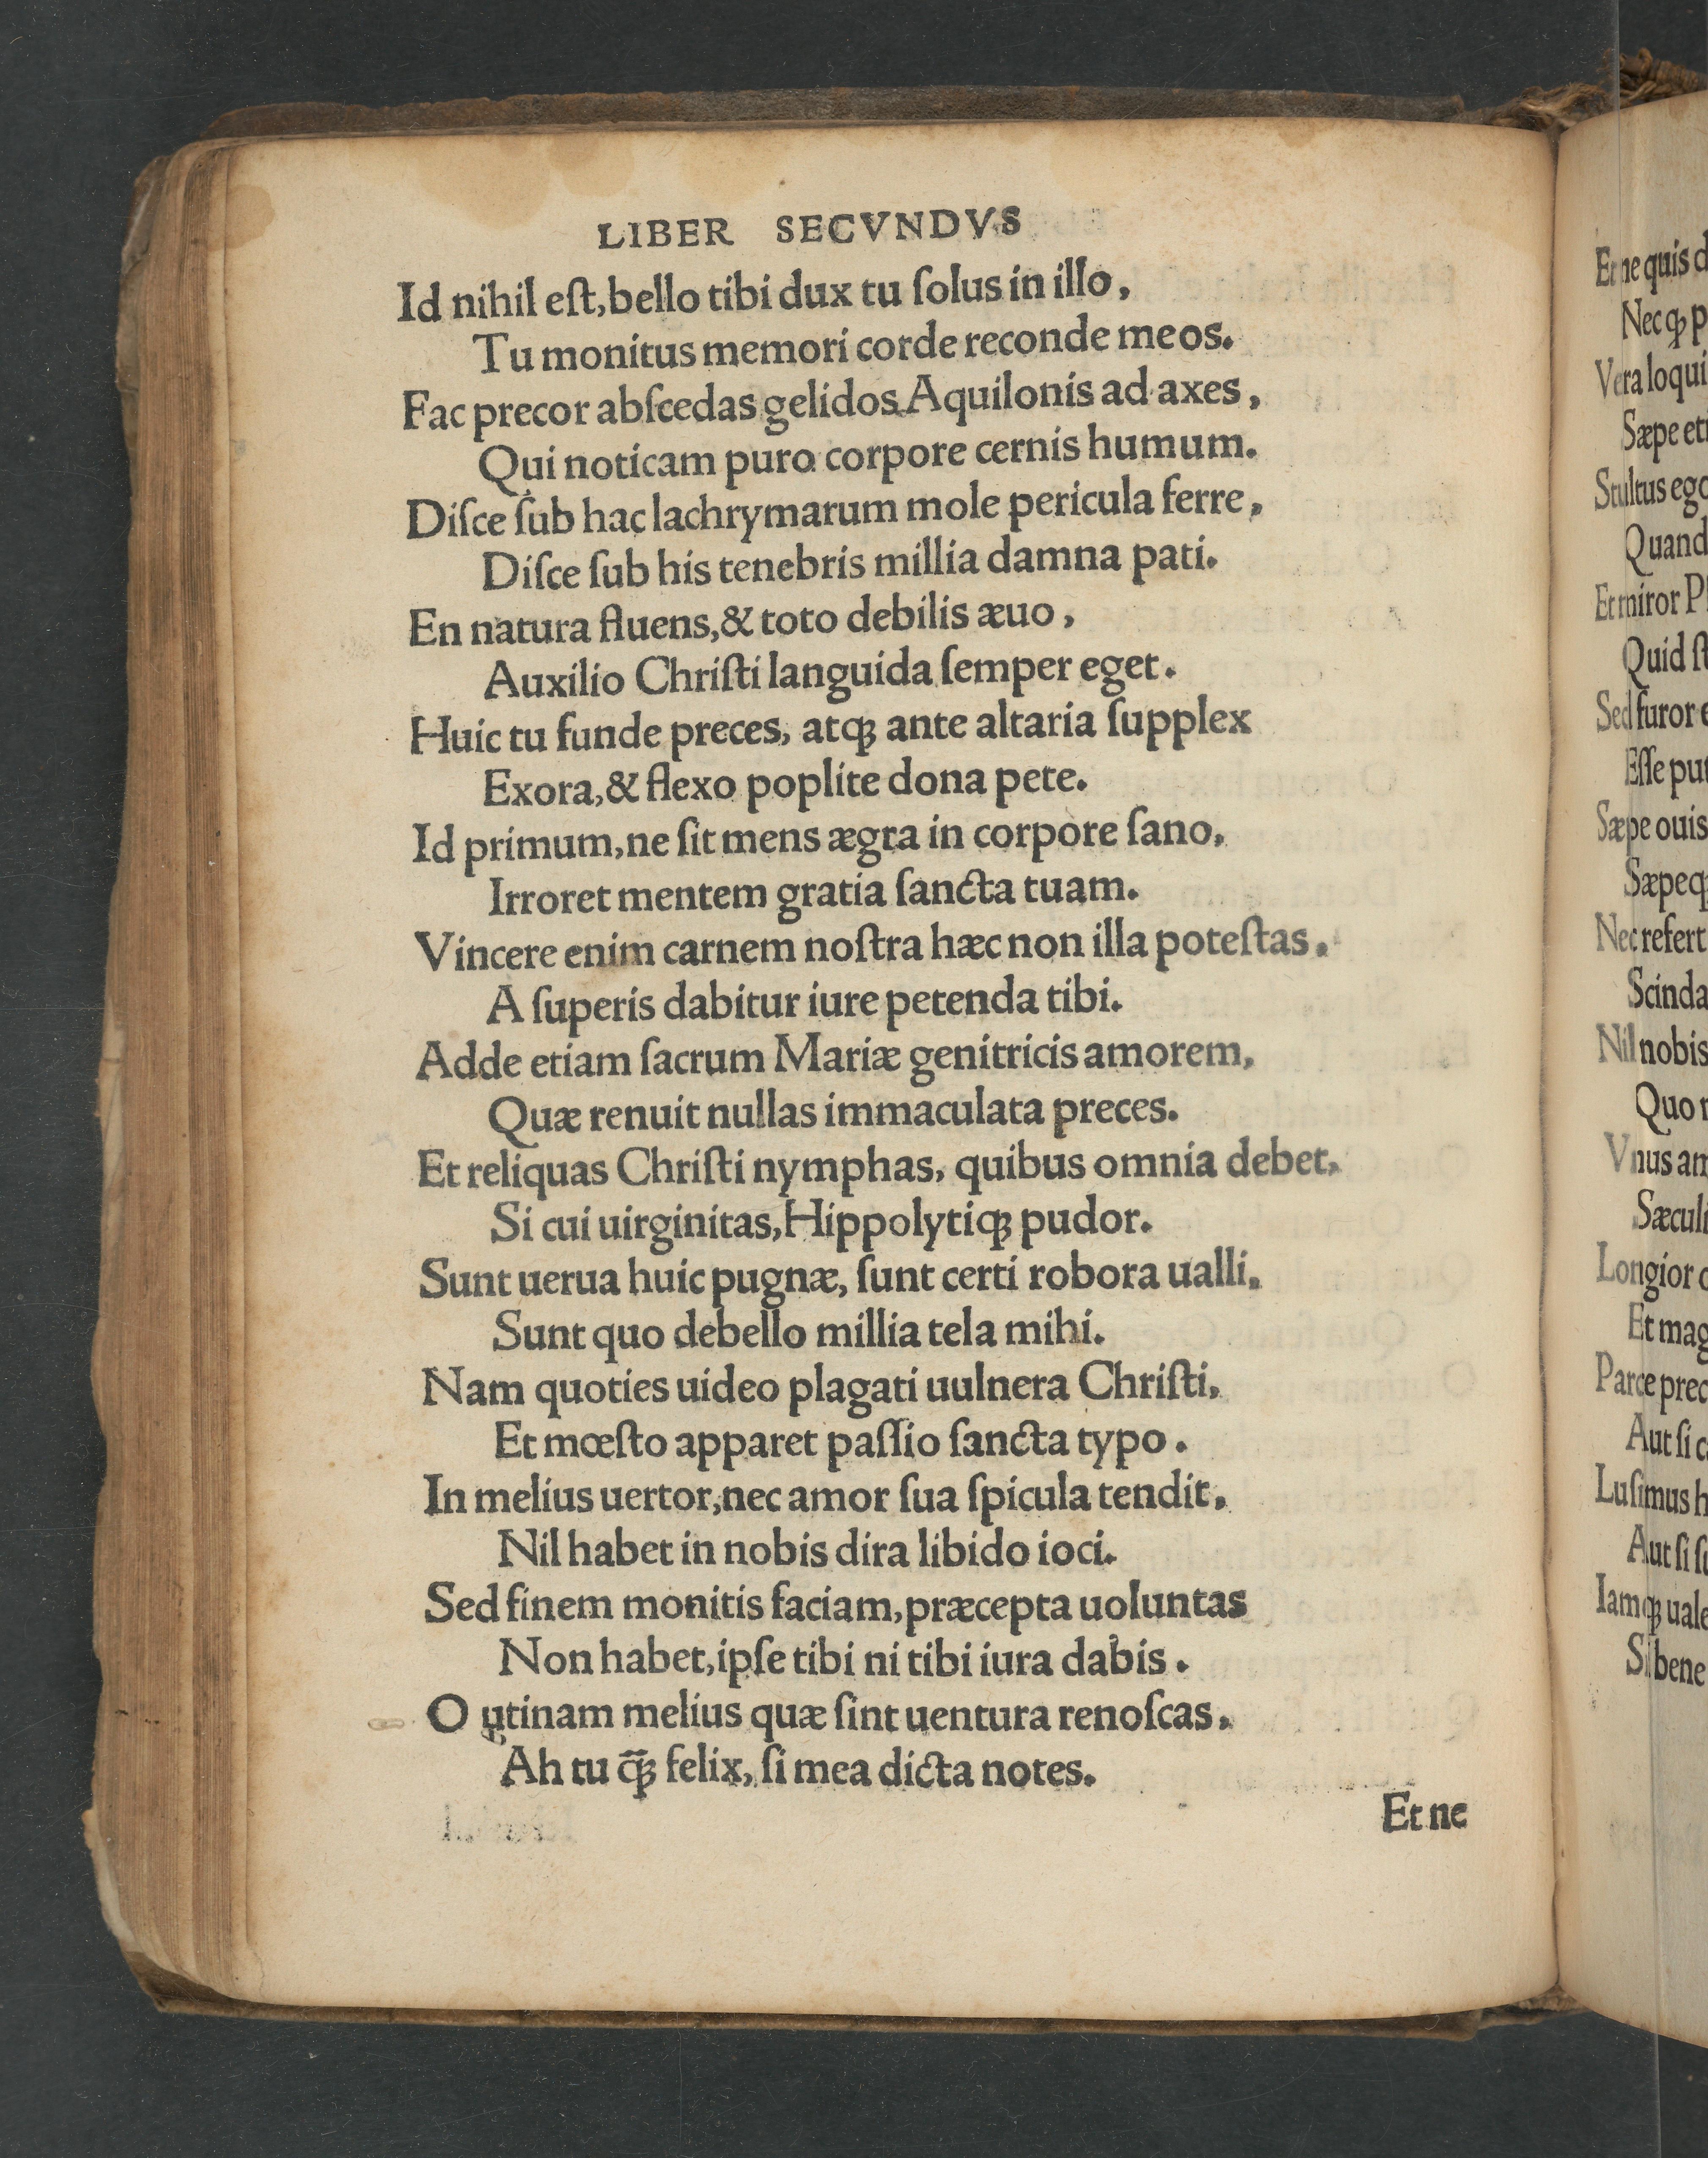 LIBER SECVNDVS
Id nihil eſt, bello tibi dux tu ſolus in illo,
Tu monitus memori corde reconde meos.
Fac precor abſcedas gelidos Aquilonis ad axes,
Qui noticam puro corpore cernis humum.
Diſce ſub hac lachrymarum mole pericula ferre,
Diſce ſub his tenebris millia damna pati.
En natura fluens, & toto debilis æuo,
Auxilio Chriſti languida ſemper eget.
Huic tu funde preces, atqꝫ ante altaria ſupplex
Exora, & flexo poplite dona pete.
Id primum, ne ſit mens ægra in corpore ſano,
Irroret mentem gratia ſancta tuam.
Vincere enim carnem noſtra hæc non illa poteſtas,
A ſuperis dabitur iure petenda tibi.
Adde etiam ſacrum Mariæ genitricis amorem,
Quæ renuit nullas immaculata preces.
Et reliquas Chriſti nymphas, quibus omnia debet,
Si cui uirginitas, Hippolytiqꝫ pudor.
Sunt uerua huic pugnæ, ſunt certi robora ualli,
Sunt quo debello millia tela mihi.
Nam quoties uideo plagati uulnera Chriſti,
Et mœſto apparet paſſio ſancta typo.
In melius uertor, nec amor ſua ſpicula tendit,
Nil habet in nobis dira libido ioci.
Sed finem monitis faciam, præcepta uoluntas
Non habet, ipſe tibi ni tibi iura dabis.
O utinam melius quæ ſint uentura renoſcas,
Ah tu q̄ꝫ felix, ſi mea dicta notes.
Et ne
Et ne quis
Necqꝫ
Vera loqui
Sæpe
Stultus
Et miror
Quid
Sed furor
Eſſe
Sæpe ouis
Sæpeqꝫ
Nec refert
Nil nobis
Quo
Vnus
Longior
Et
Parce
Aut ſi
Luſimus
Aut ſi
Iamqꝫ
Si bene